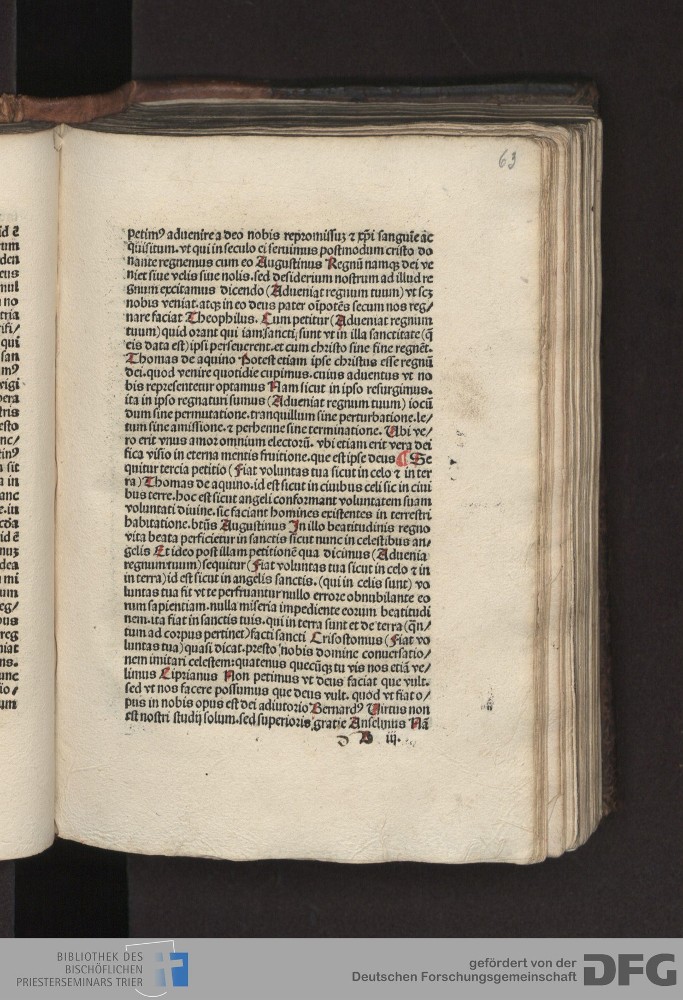 63
petimꝰ aduenire a deo nobis repromissuꝫ ⁊ xp̄i sanguīe ac
quisitum. vt qui in seculo ei seruimus postmodum cristo do
nante regnemus cum eo Augustinus Regnū namqꝫ dei ve
niet siue velis siue nolis. sed desiderium nostrum ad illud re
gnum excitamus dicendo (Adueniat regnum tuum) vt scꝫ
nobis veniat. atqꝫ in eo deus pater oīpotēs secum nos reg/
nare faciat Theophilus. Cum petitur (Adueniat regnum
tuum) quid orant qui iam sancti sunt vt in illa sanctitate (q̄
eis data est) ipsi perseuerent. et cum christo sine fine regnēt.
Thomas de aquino Potest etiam ipse christus esse regnū
dei. quod venire quotidie cupimus. cuius aduentus vt no
bis representetur optamus Nam sicut in ipso resurgimus.
ita in ipso regnaturi sumus (Adueniat regnum tuum) iocū
dum sine permutatione. tranquillum sine perturbatione. le/
tum sine amissione. ⁊ perhenne sine terminatione. Ubi ve/
ro erit vnus amor omnium electorū. vbi etiam erit vera dei
fica visio in eterna mentis fruitione. que est ipse deus ¶ Se
quitur tercia petitio (Fiat voluntas tua sicut in celo ⁊ in ter
ra) Thomas de aquino. id est sicut in ciuibus celi sic in ciui
bus terre. hoc est sicut angeli conformant voluntatem suam
voluntati diuine. sic faciant homines existentes in terrestri
habitatione. btūs Augustinus In illo beatitudinis regno
vita beata perficietur in sanctis sicut nunc in celestibus an/
gelis Et ideo post illam petitionē qua dicimus (Aduenia
regnum tuum) sequitur (Fiat voluntas tua sicut in celo ⁊ in
in terra) id est sicut in angelis sanctis. (qui in celis sunt) vo
luntas tua fit vt te perfruantur nullo errore obnubilante eo
rum sapientiam. nulla miseria impediente eorum beatitudi
nem. ita fiat in sanctis tuis. qui in terra sunt et de terra (qn̄
tum ad corpus pertinet) facti sancti Crisostomus (Fiat vo
luntas tua) quasi dicat. presto nobis domine conuersatio/
nem imitari celestem: quatenus quecūqꝫ tu vis nos etiā ve/
limus Ciprianus Non petimus vt deus faciat que vult.
sed vt nos facere possumus que deus vult. quod vt fiat o/
pus in nobis opus est dei adiutorio Bernardꝰ Uirtus non
est nostri studij solum. sed superioris gratie Anselmus Nā
D iij.
BIBLIOTHEK DES
BISCHÖFLICHEN
PRIESTERSEMINARS TRIER
gefördert von der
Deutschen Forschungsgemeinschaft
DFG